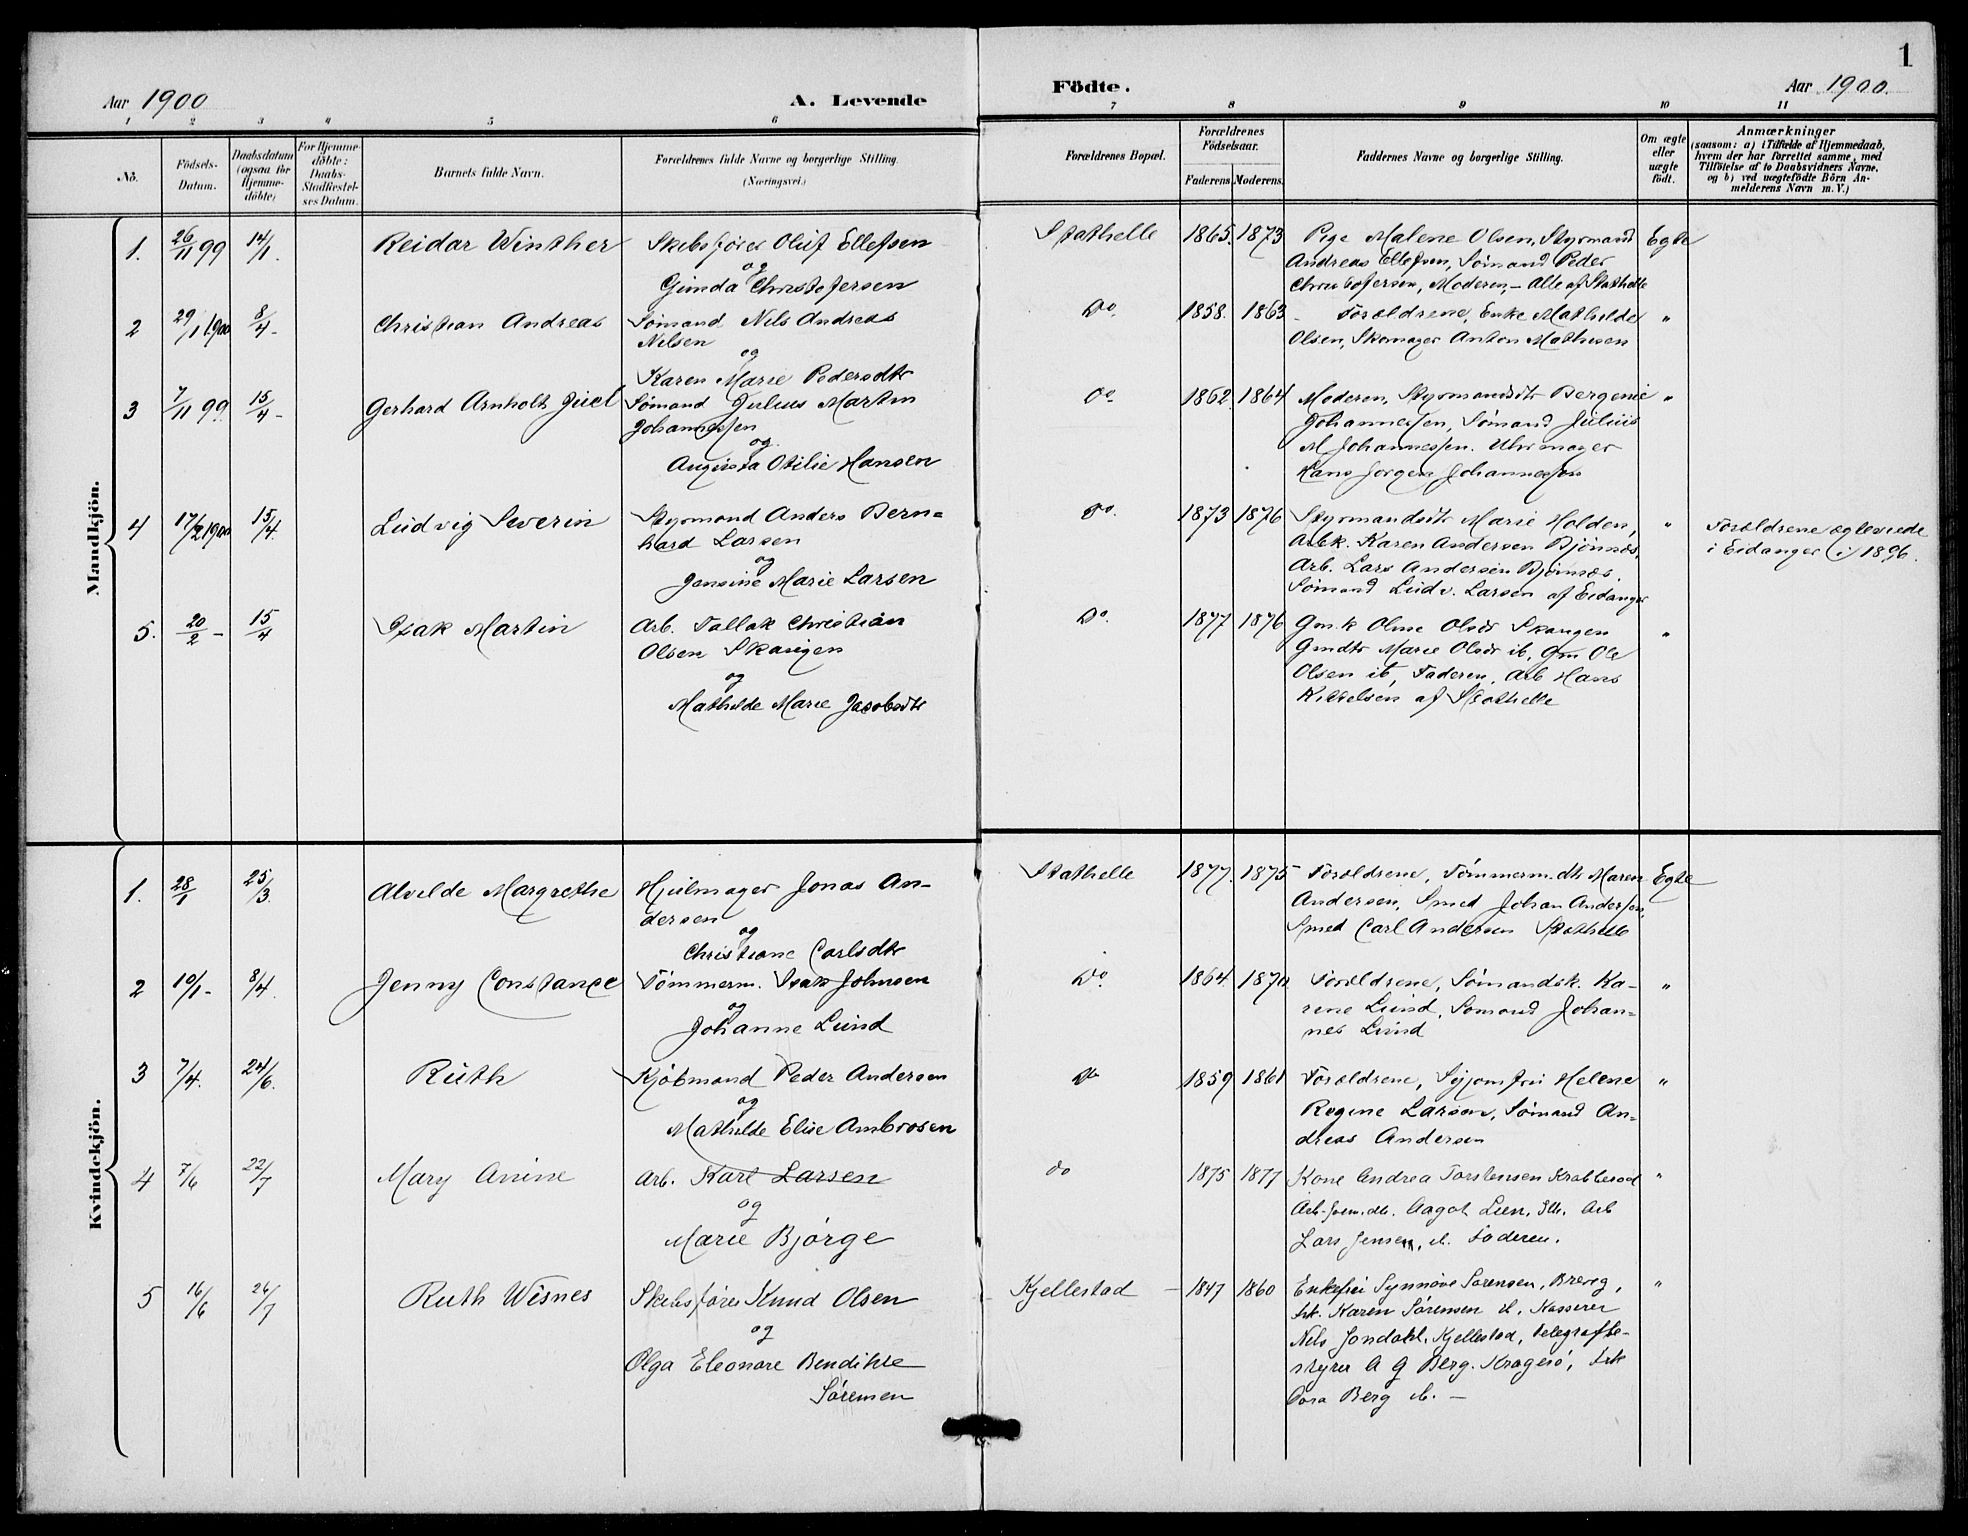 1
Aar 1900
A. Levende
Födte.
Aar 1900.
1 2 3 4 5 6 7 8 9 10 11
No.
Födsels-
Datum.
Daabsdatum
(ogsaa for
Hjemme-
döbte)
For Hjemme-
döbte:
Daabs-
Stadfæstel-
ses Datum.
Barnets fulde Navn.
Forældrenes fulde Navne og borgerlige Stilling.
(Næringsvei.)
Forældrenes Bopæl.
Forældrenes
Födselsaar.
Faderens Moderens.
Faddernes Navne og borgerlige Stilling.
Om ægte
eller
uægte
födt.
Anmærkninger
(saasom: a) i Tilfælde af Hjemmedaab,
hvem der har forrettet samme, med
Tilföielse af to Daabsvidners Navne,
og b) ved uægtefödte Börn An-
melderens Navn m. V.)
Mandkjön.
1. 26/11 99 14/1. Reidar Winther Skibsfører Oluf Ellefsen
og
Gunda Christofersen
Stathelle 1865. 1873 Pige Malene Olsen, Styrmand
Andreas Ellefsen, Sømand Peder
Christofersen, Moderen, – Alle af Stathelle
Egte
2 29/1 1900 8/4 - Christian Andreas Sømand Nils Andreas
Nilsen
og
Karen Marie Pedersdtr
Do. 1858. 1863 Forældrene, Enke Mathilde
Olsen, Skomager Anton Mathisen
"
3 7/11 99. 15/4 - Gerhard Arnholt Juel Sømand Julius Martin
Johannessen
og
Augusta Otilie Hansen
Do. 1862. 1864 Moderen, Styrmandsdtr Bergenie
Johannessen, Sømand Julius
M Johannessen. Uhrmager
Hans Jørgen Johannessen
"
4 17/2 1900 15/4. Ludvig Severin Styrmand Anders Bern=
hard Larsen
og
Jensine Marie Larsen
Do. 1873 1876 Styrmandsdtr Marie Holden,
Arbk. Karen Andersen Bjönnes,
Arb. Lars Andersen Bjönnes.
Sømand Ludv. Larsen af Eidanger
"
Forældrene egteviede
i Eidanger i 1896.
5. 20/2 – 15/4 Isak Martin Arb. Tallak Christian
Olsen Skaugen
og
Mathilde Marie Jacobsdtr
Do. 1877 1876 Gm.k Oline Olsdr Skaugen
Gmdtr Marie Olsdr ib, Gm Ole
Olsen ib, Faderen, Arb Hans
Kittelsen af Stathelle
"
Kvindekjön.
1. 28/1 25/3. Alvilde Margrethe Hjulmager Jonas An-
dersen
og
Christiane Carlsdtr
Stathelle 1877. 1875 Forældrene, Tømmerm.dtr Maren
Andersen, Smed Johan Andersen,
Smed Carl Andersen Stathelle
Egte
2 10/1 - 8/4. Jenny Constance Tømmerm. Isak Johnsen
og
Johanne Lund
Do. 1864 1870 Forældrene, Sømandsk. Ka-
rine Lund, Sømand Johan=
nes Lund
"
3 7/4. 24/6. Ruth Kjøbmand Peder Andersen
og
Mathilde Elise Ambrosen
Do 1859 1861 Forældrene, Syjomfru Helene
Regine Larsen, Sømand An=
dreas Andersen
"
4 7/6 22/7 Mary Anine Arb. Karl Larsen
og
Marie Bjørge
do 1875 1877 Kone Andrea Torstensen Krabberød
Aagot Lien, Sth. Arb
Lars Jensen, ib. Faderen.
"
5 16/6 26/7 Ruth Wisnes Skibsfører Knud Olsen
og
Olga Eleonore Bendikte
Sørensen
Kjellestad – 1847 1860 Enkefru Synnøve Sørensen, Brevig,
Frk. Karen Sørensen ib. Kasserer
Nils Jondahl, Kjellestad, Telegrafbe-
styrer A G Berg. Kragerø, Frk
Dora Berg ib. –
"